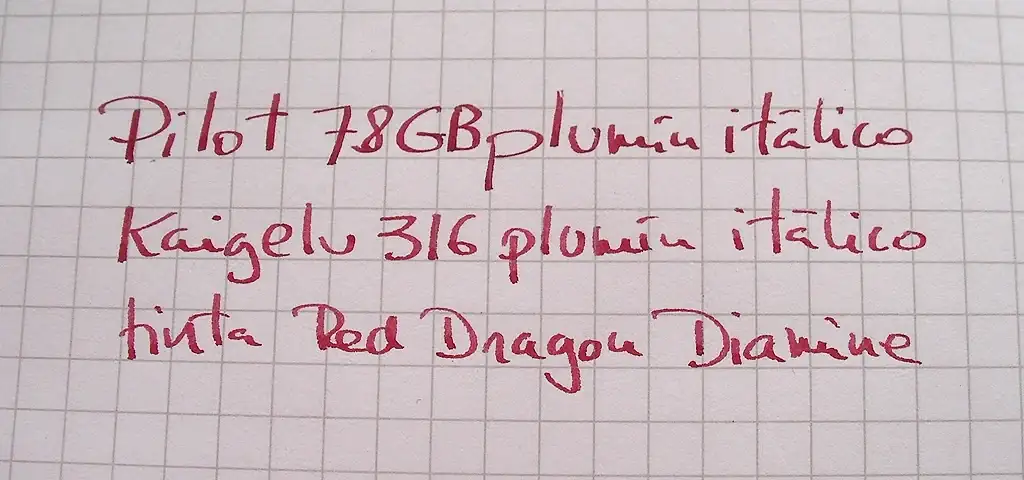 Pilot 78GB plumín itálico
Kaigelu 316 plumín itálico
tinta Red Dragon Diamine